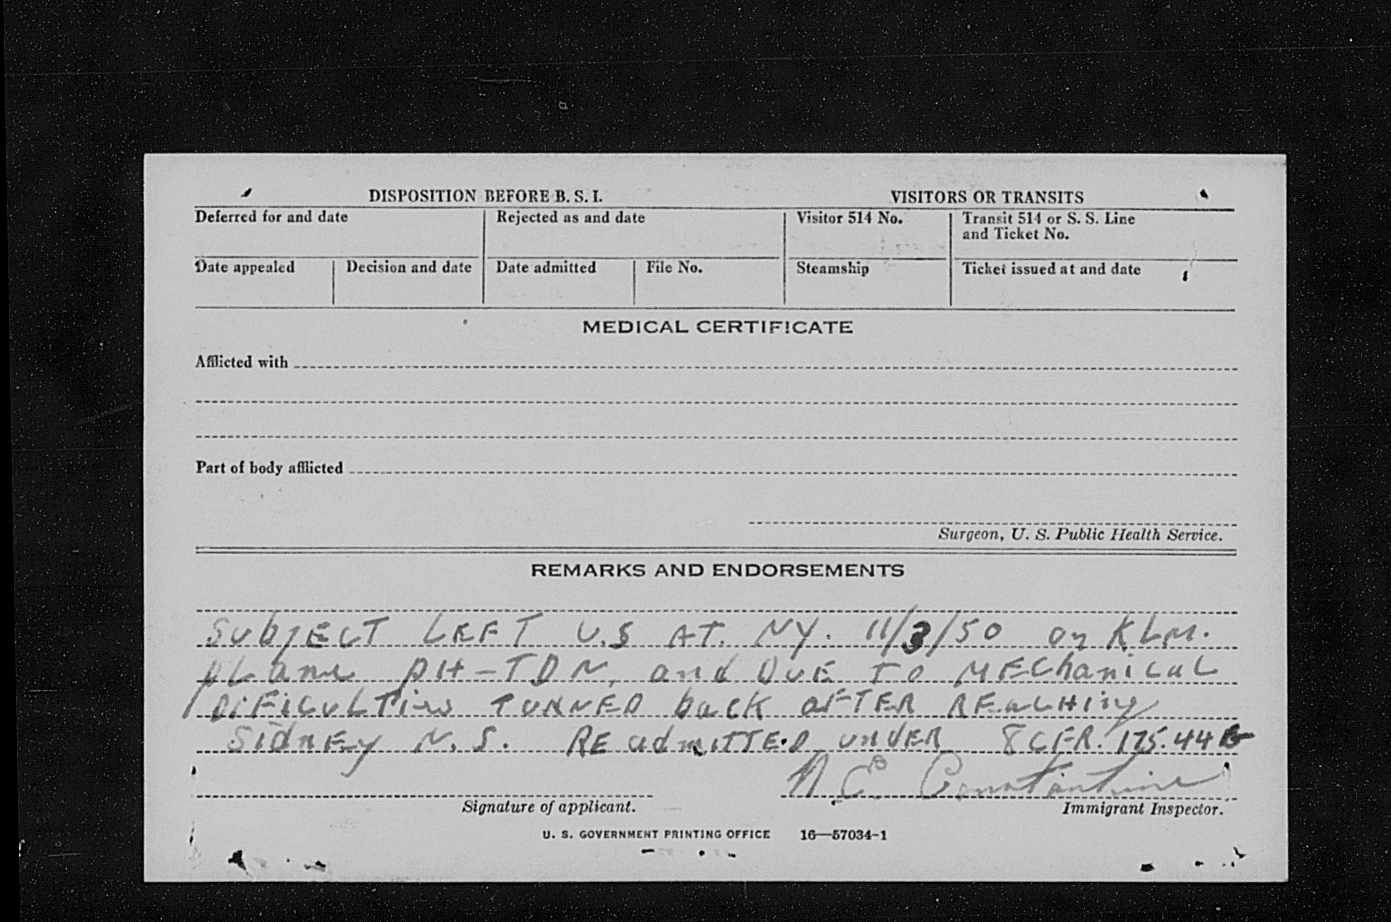 DISPOSITION BEFORE B. S. I. VISITORS OR TRANSITS
Deferred for and date Rejected as and date Visitor 514 No. Transit 514 or S. S. Line
and Ticket No.
Date appealed Decision and date Date admitted File No. Steamship Ticket issued at and date
MEDICAL CERTIFICATE
Afflicted with
Part of body afflicted
Surgeon, U. S. Public Health Service.
REMARKS AND ENDORSEMENTS
SUbjECT LEFT U.S AT. NY. 11/3/50 on KLM.
pLane PH-TDN, and DUE TO MEChanicaL
DiFiCULTies TURNED back aFTER REacHing
SidnEy N.S. REadmiTTED UNDER 8CFR. 175.44B
N.C. Constantine
Signature of applicant. Immigrant Inspector.
U. S. GOVERNMENT PRINTING OFFICE 16—57034-1